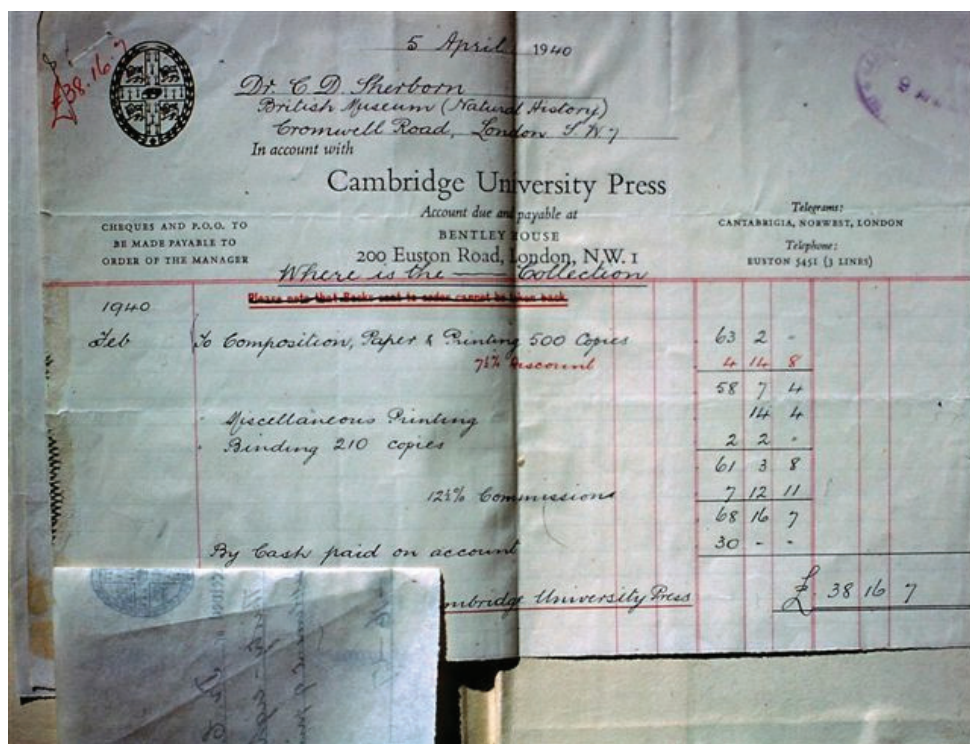 £38.16.7
5 April 1940
Dr. C. D. Sherborn
British Museum (Natural History)
Cromwell Road, London S.W.7
In account with
Cambridge University Press
Account due and payable at
BENTLEY HOUSE
200 Euston Road, London, N.W.1
CHEQUES AND P.O.O. TO
BE MADE PAYABLE TO
ORDER OF THE MANAGER
Telegrams:
CANTABRIGIA, NORWEST, LONDON
Telephone:
EUSTON 5451 (3 LINES)
Where is the —— Collection
Please note that Books sent to order cannot be taken back
1940
Feb To Composition, Paper & Printing 500 Copies 63 2 -
7½% Discount 4 14 8
58 7 4
Miscellaneous Printing 14 4
Binding 210 copies 2 2 -
61 3 8
12½% Commissions 7 12 11
68 16 7
By Cash paid on account 30 - -
mbridge University Press £ 38 16 7